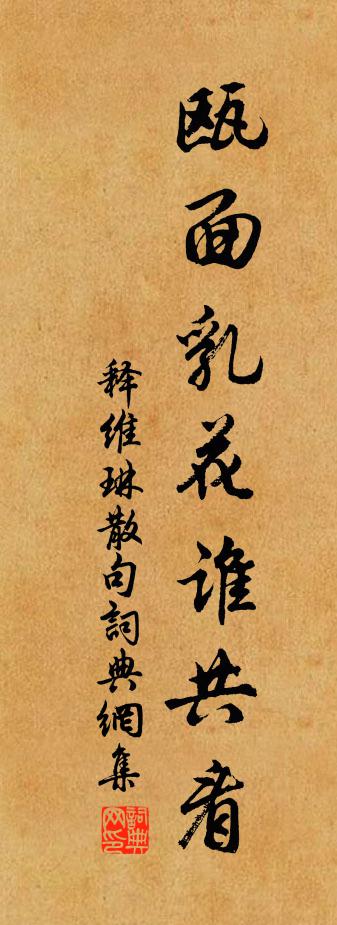 瓯面乳花谁共者
释维琳散句詞典網集
詞典网印